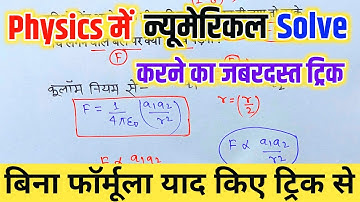 Physics में न्यूमेरिकल Solve
करने का जबरदस्त ट्रिक
(F)
(F)
कूलॉम नियम से-
r = (r/2)
F = 1/4πε₀ (q₁q₂/r²)
F ∝ q₁q₂/r²
F ∝ q₁q₂
बिना फॉर्मूला याद किए ट्रिक से